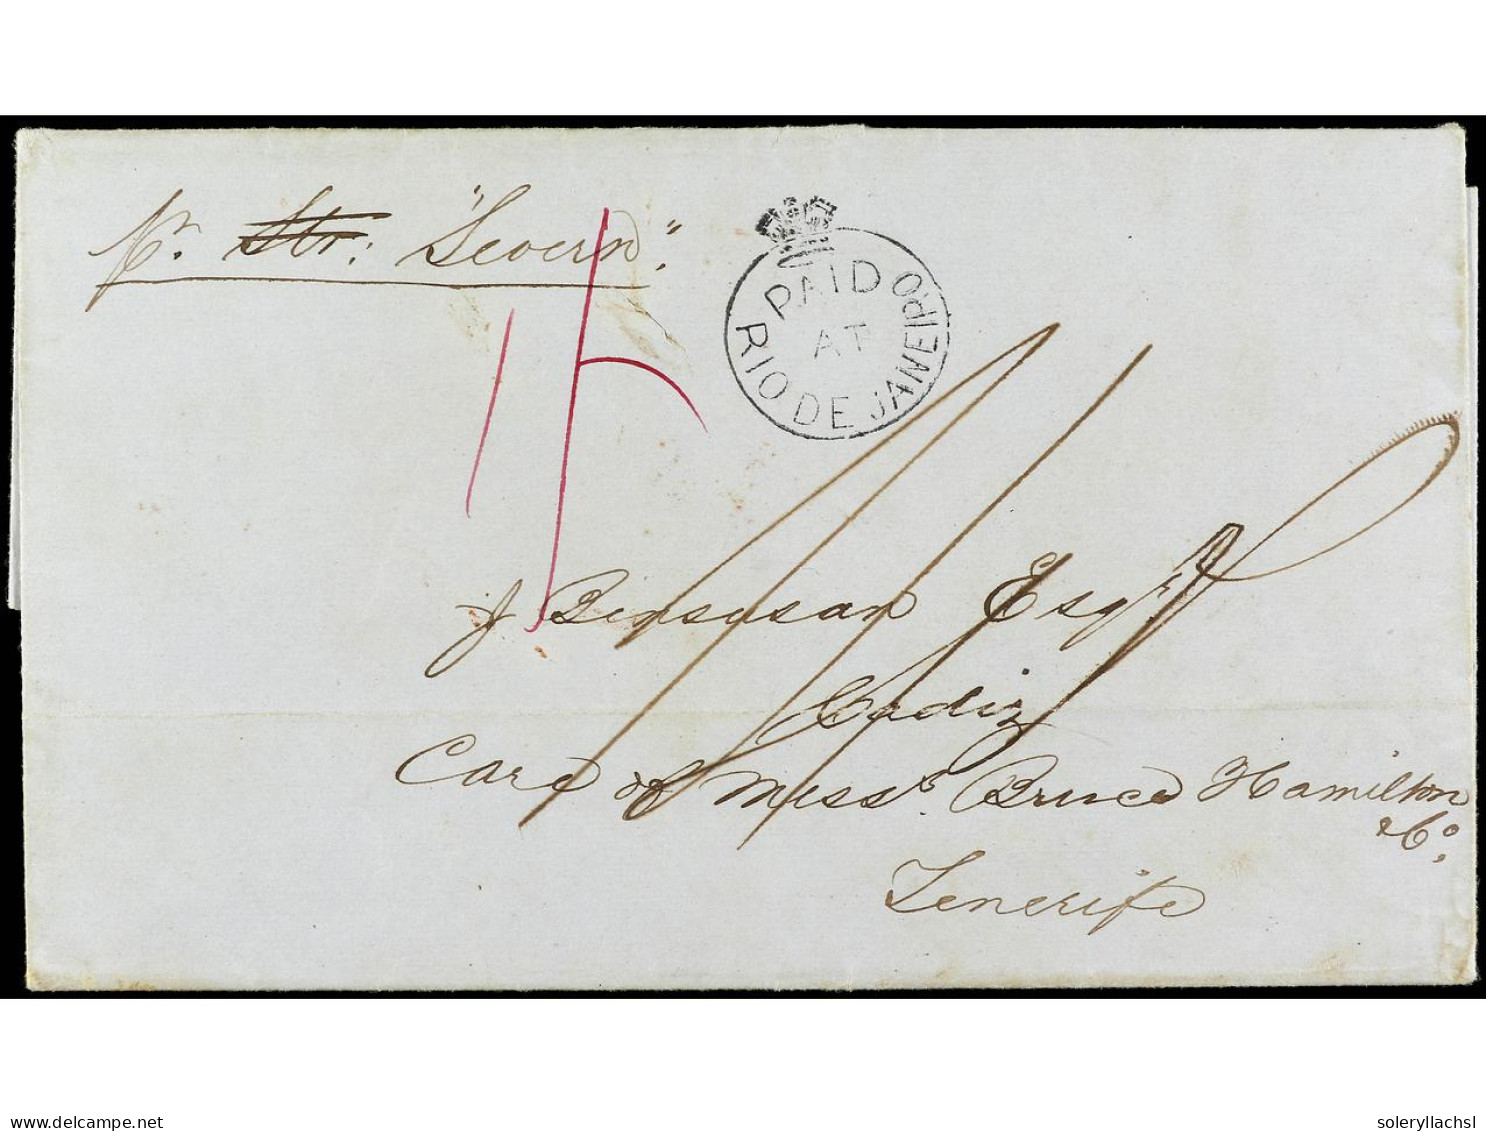 Pr. Str: "Severn".
1/-
PAID
AT
RIO DE JANEIRO
J Bensusan Esqr
Cadiz
Care of Messrs. Bruce Hamilton
& Co.
Tenerife
delcampe.net
soleryllachsl